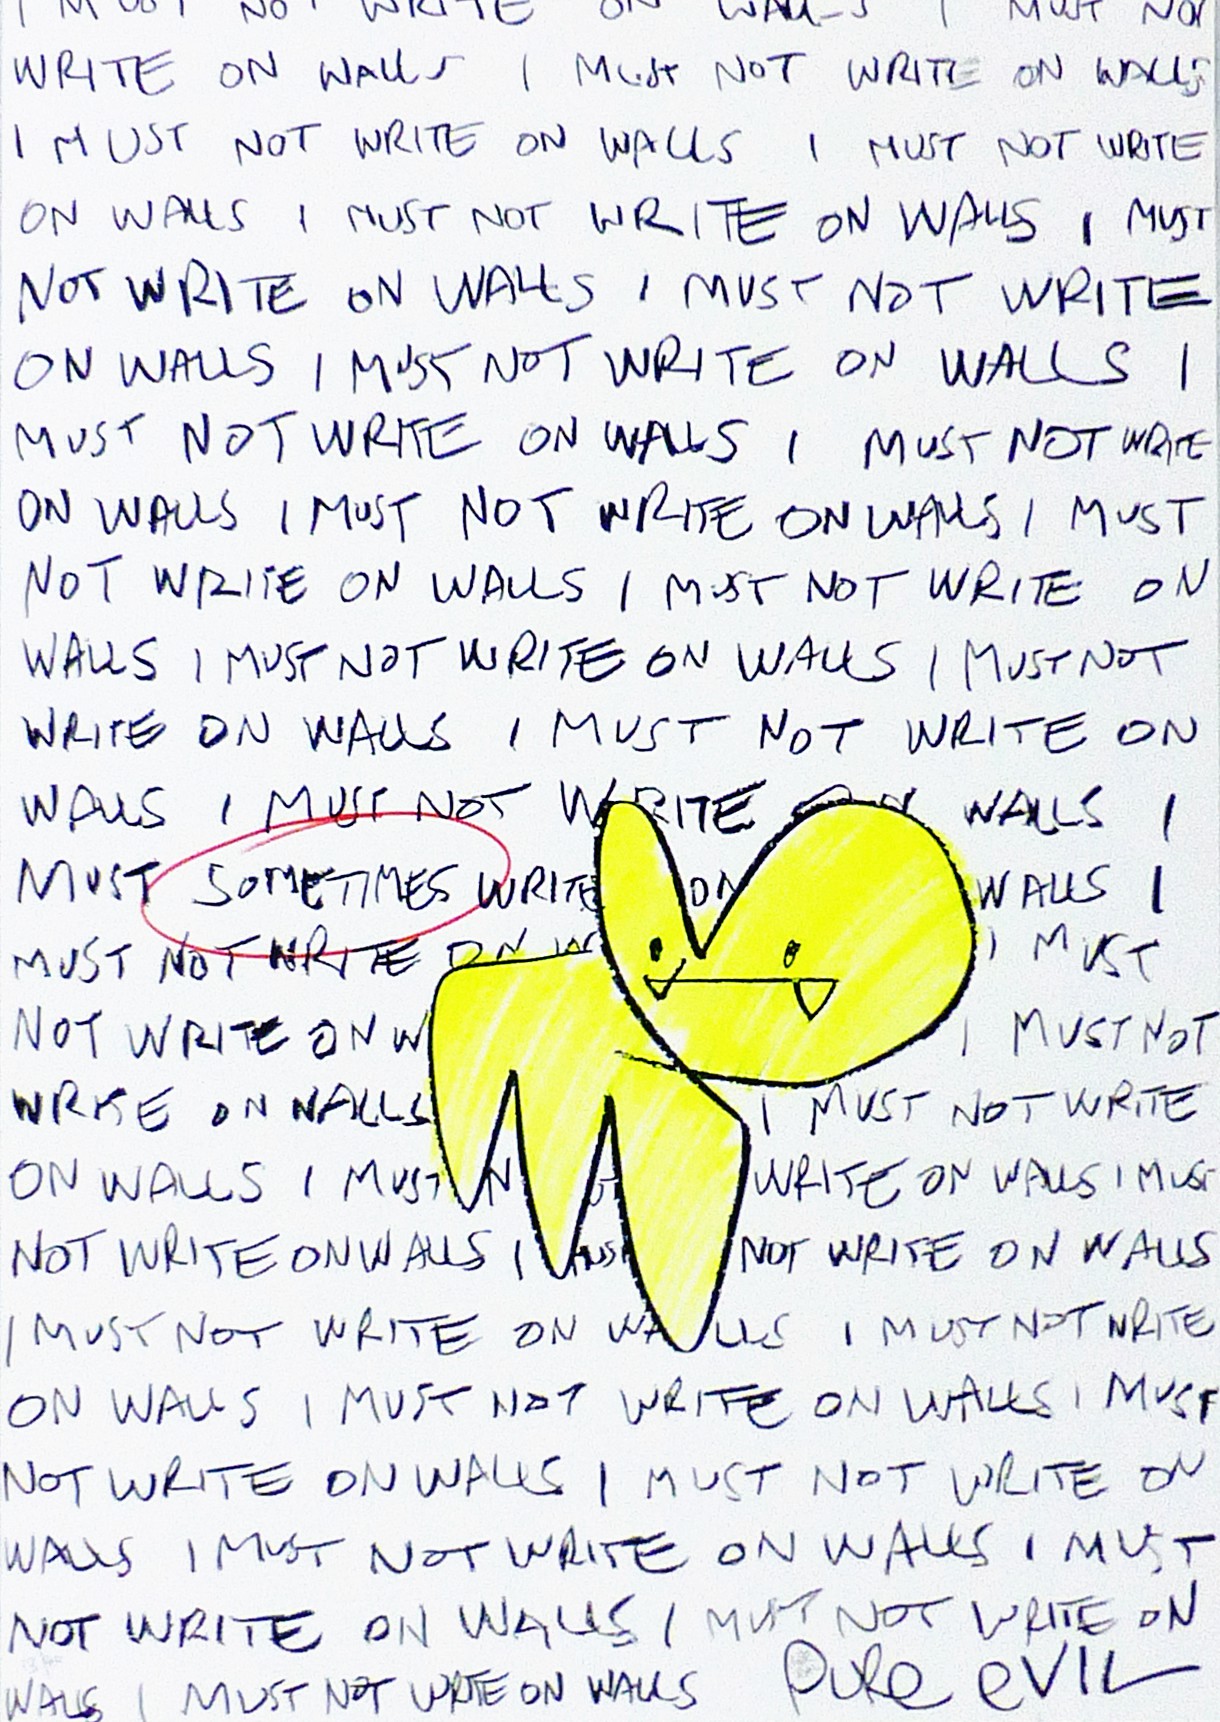 I MUST NOT WRITE ON WALLS I MUST NOT
WRITE ON WALLS I MUST NOT WRITE ON WALLS
I MUST NOT WRITE ON WALLS I MUST NOT WRITE
ON WALLS I MUST NOT WRITE ON WALLS I MUST
NOT WRITE ON WALLS I MUST NOT WRITE
ON WALLS I MUST NOT WRITE ON WALLS I
MUST NOT WRITE ON WALLS I MUST NOT WRITE
ON WALLS I MUST NOT WRITE ON WALLS I MUST
NOT WRITE ON WALLS I MUST NOT WRITE ON
WALLS I MUST NOT WRITE ON WALLS I MUST NOT
WRITE ON WALLS I MUST NOT WRITE ON
WALLS I MUST NOT WRITE ON WALLS I
MUST SOMETIMES WRITE ON WALLS I
MUST NOT WRITE ON W I MUST
NOT WRITE ON W I MUST NOT
WRITE ON WALLS I MUST NOT WRITE
ON WALLS I MUST N WRITE ON WALLS I MUST
NOT WRITE ON WALLS I MUST NOT WRITE ON WALLS
I MUST NOT WRITE ON WALLS I MUST NOT WRITE
ON WALLS I MUST NOT WRITE ON WALLS I MUST
NOT WRITE ON WALLS I MUST NOT WRITE ON
WALLS I MUST NOT WRITE ON WALLS I MUST
NOT WRITE ON WALLS I MUST NOT WRITE ON
WALLS I MUST NOT WRITE ON WALLS PURE EVIL